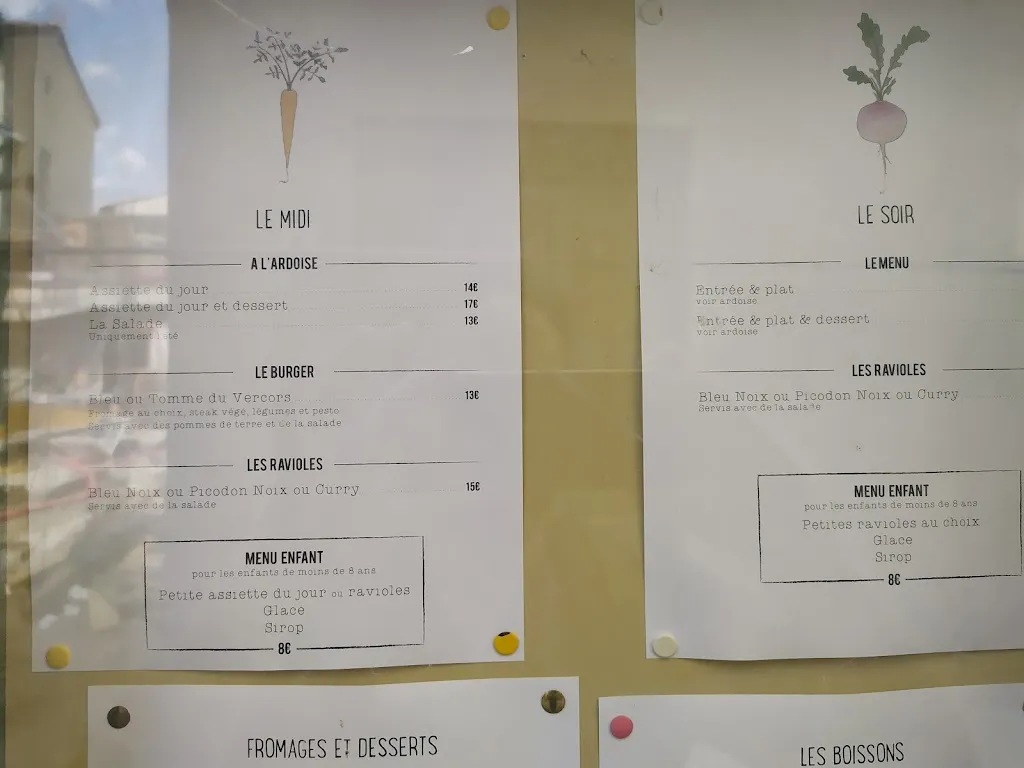 LE MIDI
A L'ARDOISE
Assiette du jour 14€
Assiette du jour et dessert 17€
La Salade 13€
Uniquement l'été
LE BURGER
Bleu ou Tomme du Vercors 13€
Fromage au choix, steak végé, légumes et pesto
Servis avec des pommes de terre et de la salade
LES RAVIOLES
Bleu Noix ou Picodon Noix ou Curry 15€
Servis avec de la salade
MENU ENFANT
pour les enfants de moins de 8 ans
Petite assiette du jour ou ravioles
Glace
Sirop
8€
LE SOIR
LE MENU
Entrée & plat
voir ardoise
Entrée & plat & dessert
voir ardoise
LES RAVIOLES
Bleu Noix ou Picodon Noix ou Curry
Servis avec de la salade
MENU ENFANT
pour les enfants de moins de 8 ans
Petites ravioles au choix
Glace
Sirop
8€
FROMAGES ET DESSERTS
LES BOISSONS